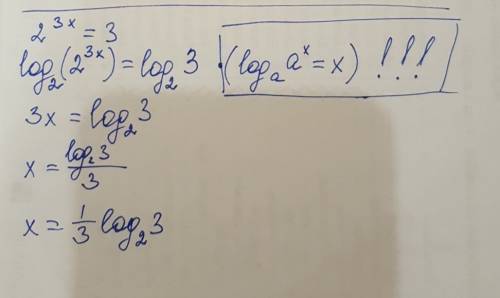 2^{3x} = 3
log₂(2^{3x}) = log₂3 · (logₐa^x = x) !!!
3x = log₂3
x = log₂3/3
x = 1/3 log₂3